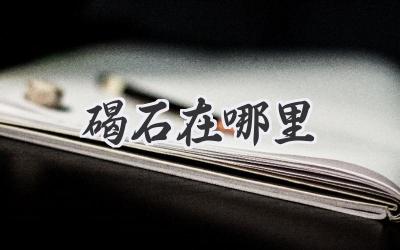 碣石在哪里